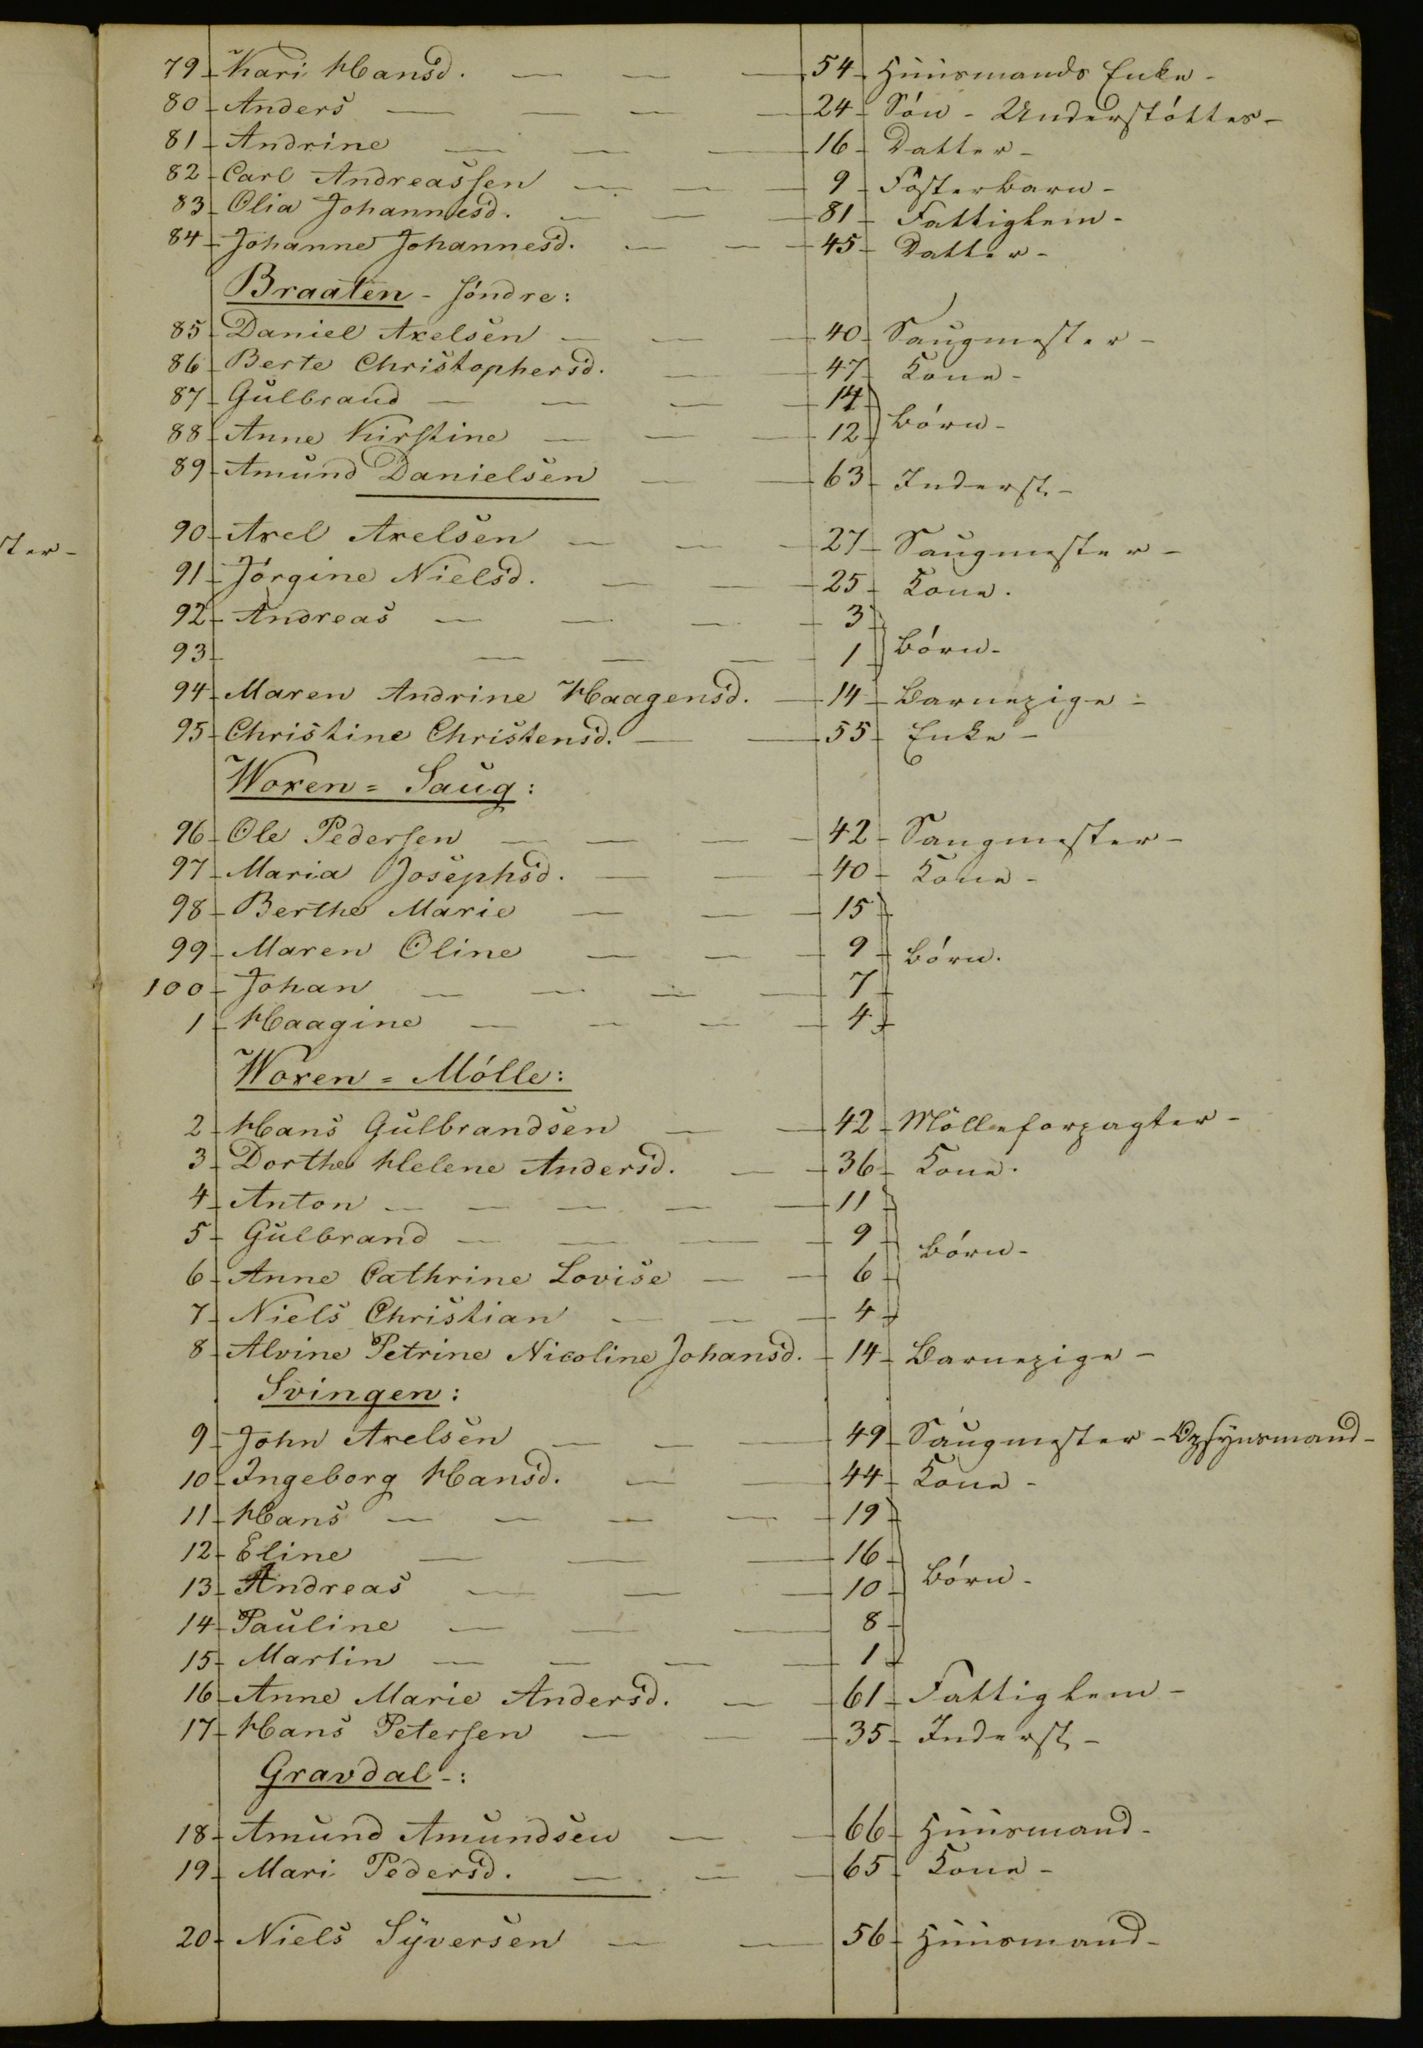 79 Kari Hansd. 54 Huusmands Enke
80 Anders 24 Søn - Understøttes
81 Andrine 16 Datter
82 Carl Andreassen 9 Fosterbarn
83 Olia Johannesd. 81 Fattiglem
84 Johanne Johannesd. 45 Datter
Braaten - søndre:
85 Daniel Axelsen 40 Saugmester
86 Berte Christophersd. 47 Kone
87 Gulbrand 14
88 Anne Kirstine 12 Børn
89 Amund Danielsen 63 Inderst
ster
90 Axel Axelsen 27 Saugmester
91 Jørgine Nielsd. 25 Kone.
92 Andreas 3
93 1 Børn
94 Maren Andrine Haagensd. 14 Barnepige
95 Christine Christensd. 55 Enke
Woxen = Saug:
96 Ole Pedersen 42 Saugmester
97 Maria Josephsd. 40 Kone
98 Berthe Marie 15
99 Maren Oline 9 Børn.
100 Johan 7
1 Haagine 4
Woxen = Mølle:
2 Hans Gulbrandsen 42 Mølleforpagter
3 Dorthe Helene Andersd. 36 Kone.
4 Anton 11
5 Gulbrand 9 Børn
6 Anne Cathrine Lovise 6
7 Niels Christian 4
8 Alvine Petrine Nicoline Johansd. 14 Barnepige
Svingen:
9 John Axelsen 49 Saugmester - Opsynsmand
10 Ingeborg Hansd. 44 Kone
11 Hans 19
12 Eline 16
13 Andreas 10 Børn
14 Pauline 8
15 Martin 1
16 Anne Marie Andersd. 61 Fattiglem
17 Hans Petersen 35 Inderst
Gravdal:
18 Amund Amundsen 66 Huusmand
19 Mari Pedersd. 65 Kone
20 Niels Syversen 56 Huusmand